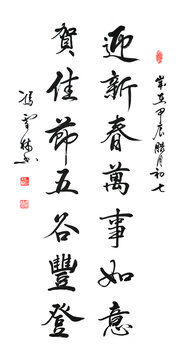 歲在甲辰臘月初七
迎新春萬事如意
賀佳節五谷豐登